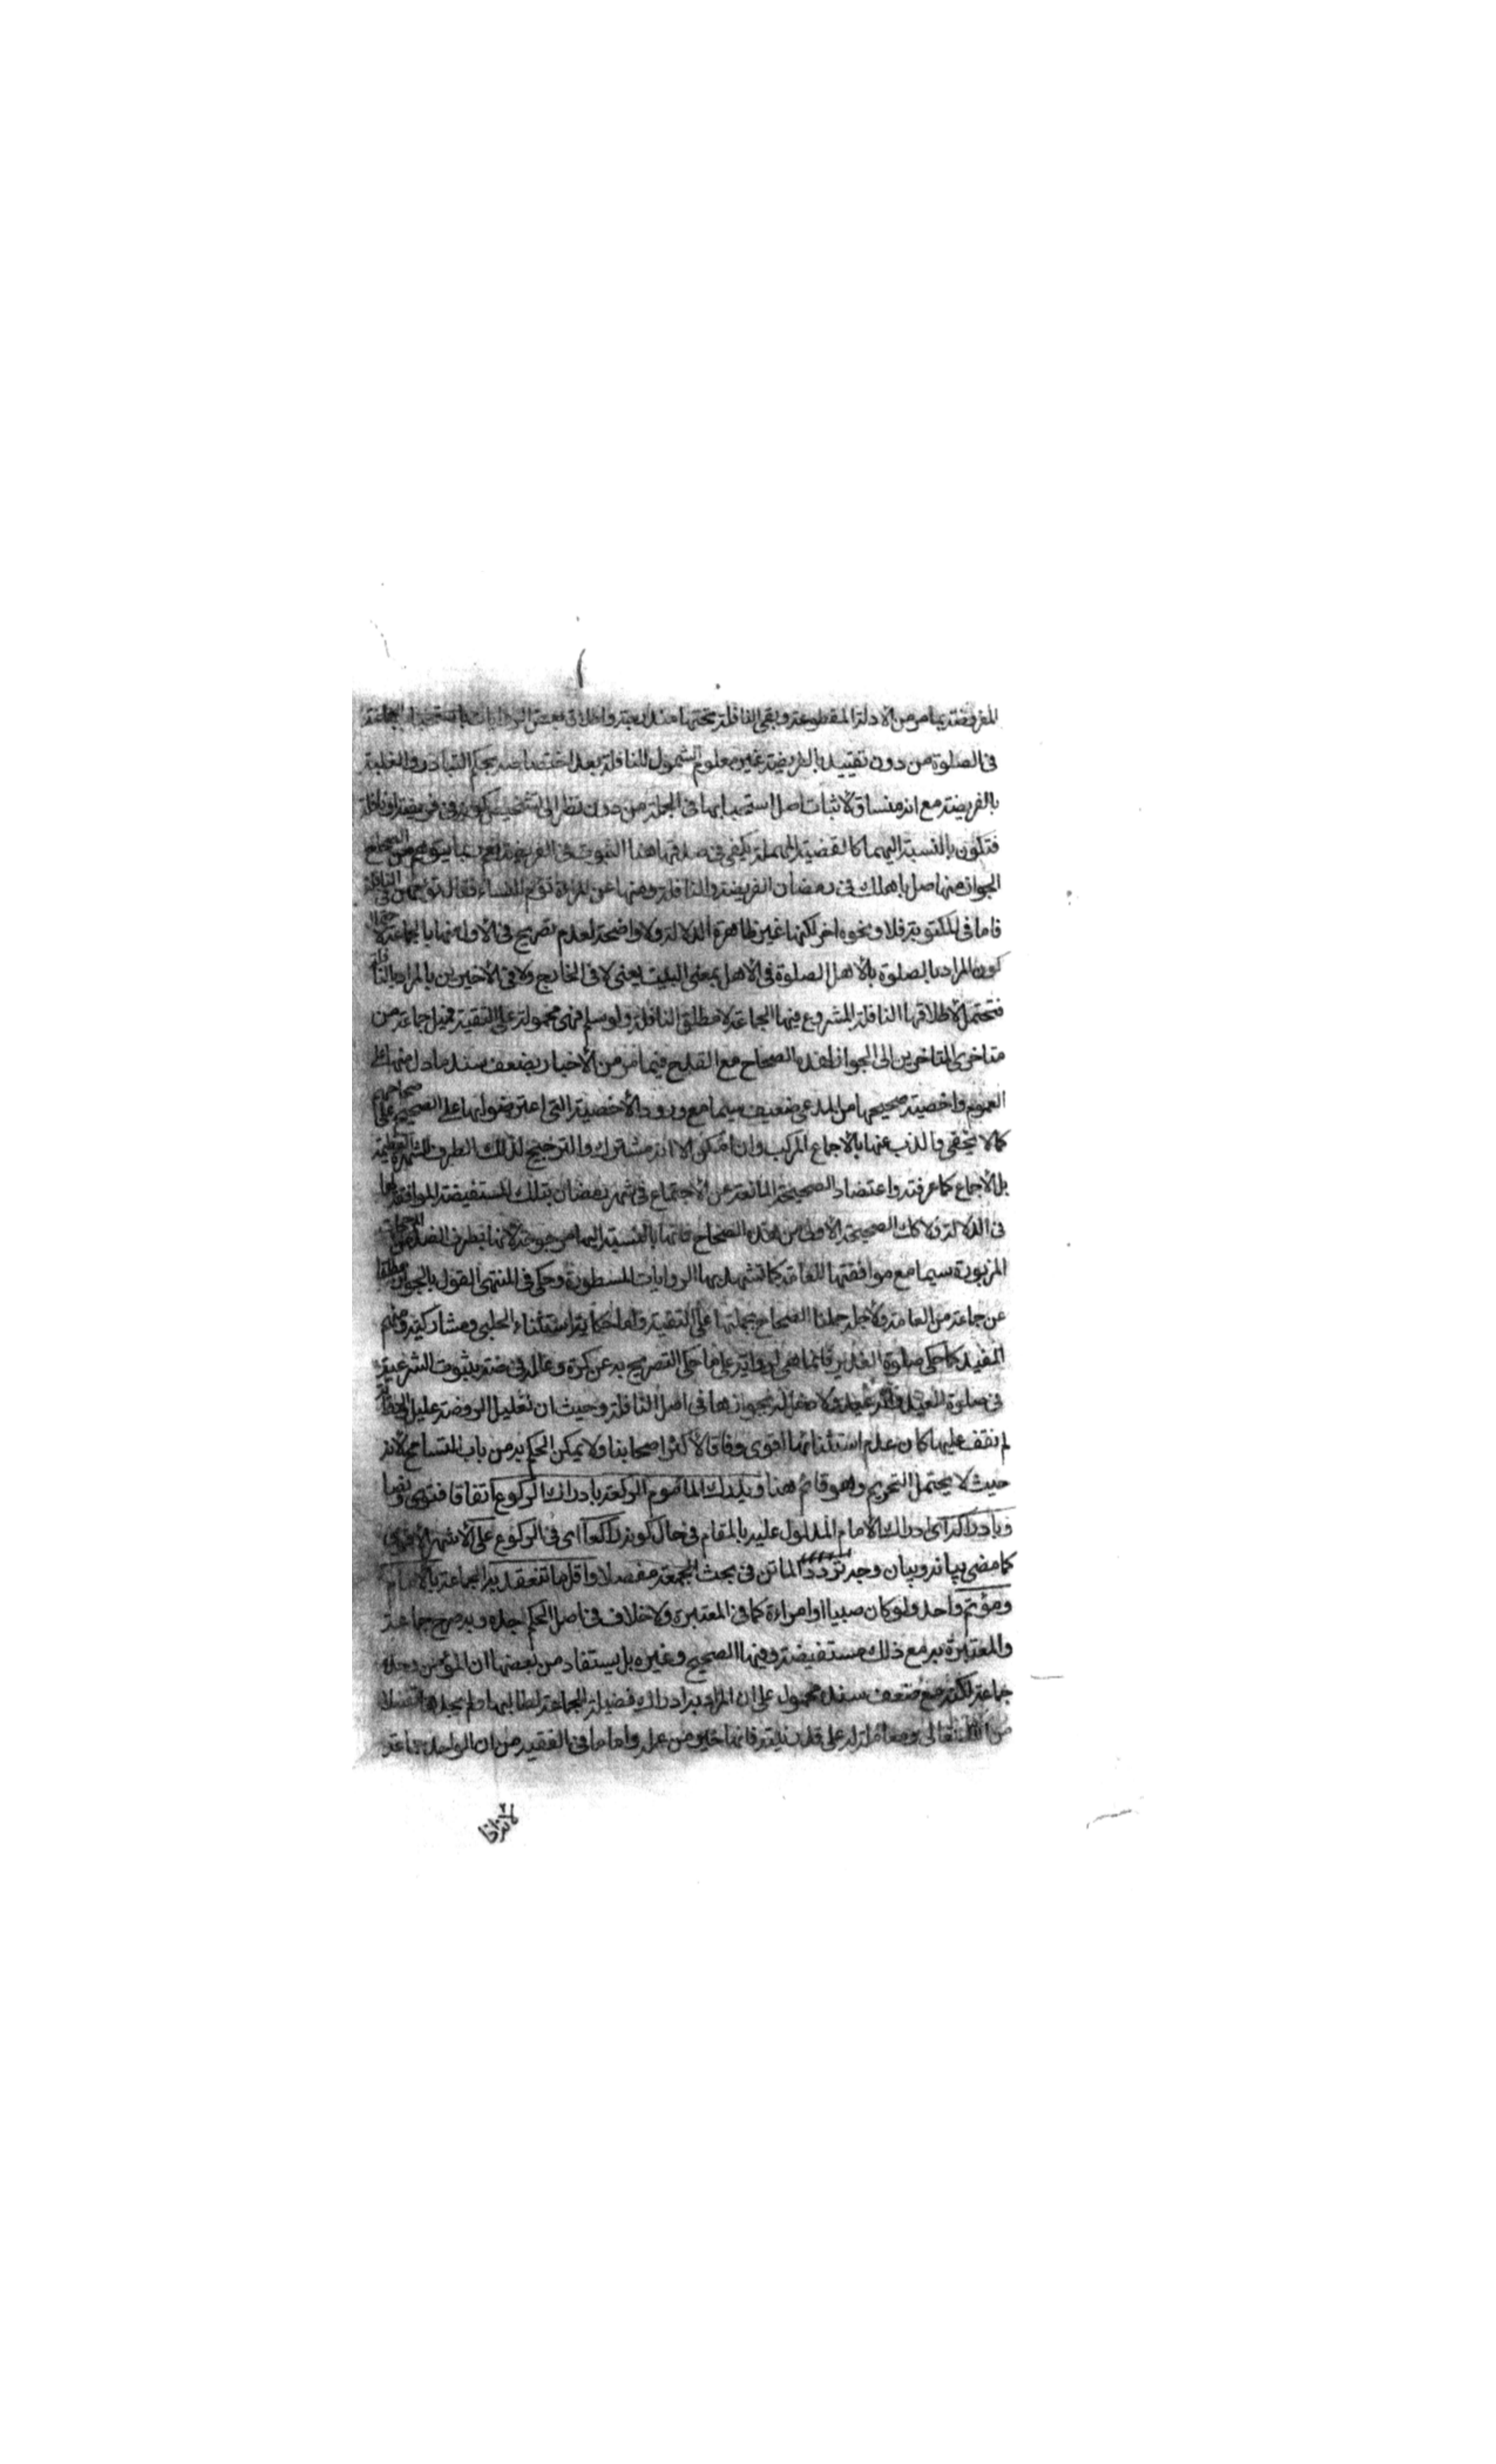 المفروضة بما مر من الادلة المقطوعة وبقى النافلة تحتها مندرجة واطلاق بعض الروايات باستحباب الجماعة
فى الصلوة من دون تقييد بالفريضة غير معلوم الشمول للنافلة بعد اختصاصه بحكم التبادر والغلبة
بالفريضة مع انه منساق لاثبات اصل استحبابها فى الجملة من دون نظر الى تشخيص كونه فى فريضة او نافلة
فتكون بالنسبة اليهما كالقضية المهملة يكفى فى صدقها هذا الثبوت فى الفريضة نعم ربما يتوهم من الصحاح
الجواز منها صل باهلك فى رمضان الفريضة والنافلة ومنها عن المراة تؤم النساء فقال تؤمهن فى النافلة
فاما فى المكتوبة فلا ونحوه اخر لكنها غير ظاهرة الدلالة ولا واضحة لعدم تصريح فى الاولة منها بالجماعة لاحتمال
كون المراد بالصلوة بالاهل الصلوة فى الاهل بمعنى البيت يعنى لا فى الخارج ولا فى الاخيرين بالمراد بالنافلة
فتحتمل لاطلاقها النافلة المشروع فيها الجماعة لا مطلق النافلة ولو سلم فهى محمولة على التقية فميل جماعة من
متاخرى المتاخرين الى الجواز لهذه الصحاح مع القدح فيما مر من الاخبار بضعف سند ما دل منها على
العموم واخصية صحيحها من المدعى ضعيف سيما مع ورود الاخصية التى اعترضوا بها على الصحيح على صحاحهم
كما لا يخفى والذب عنها بالاجماع المركب وان امكن الا انه مشترك والترجيح لذلك الطرف للشهرة العظيمة
بل الاجماع كما عرفته واعتضاد الصحيحة المانعة عن الاجتماع فى شهر رمضان بتلك المستفيضة الموافقة لها
فى الدلالة ولا كك الصحيحة الاولى من هذه الصحاح فانها بالنسبة اليها مرجوحة لانها بطرف الضد من المرجحات
المزبورة سيما مع موافقتها للعامة كما تشهد بها الروايات المسطورة وحكى فى المنتهى القول بالجواز مطلقا
عن جماعة من العامة ولاجله حملنا الصحاح بجملتها على التقية واما حكاية استثناء الحلبى ومشاركيه ومنهم
المفيد كما حكى صلوة الغدير فانما هى لرواية على ما حكى التصريح به عن كره وعلله فى ضه بثبوت الشرعية
فى صلوة العيد وانه عيد ولا دخل له بجوازها فى اصل النافلة وحيث ان تعليل الروضة عليل والرواية
لم نقف عليها كان عدم استثنائها اقوى وفاقا لاكثر اصحابنا ولا يمكن الحكم به من باب التسامح لانه
حيث لا يحتمل التحريم وهو قائم هنا ويدرك الماموم الركعة بادراك الركوع اتفاقا فتوى ونصا
وبادراكه اى ادراك الامام المدلول عليه بالمقام فى حال كونه راكعا اى فى الركوع على الاشهر الاقوى
كما مضى بيانه وبيان وجه تردد الماتن فى بحث الجمعة مفصلا واقل ما تنعقد به الجماعة بالامام
ومؤتم واحد ولو كان صبيا او امراءة كما فى المعتبرة ولا خلاف فى اصل الحكم اجده وبه صرح جماعة
والمعتبرة به مع ذلك مستفيضة وفيها الصحيح وغيره بل يستفاد من بعضها ان المؤمن وحده
جماعة لكنه مع ضعف سنده محمول على ان المراد به ادراك فضيلة الجماعة لطالبها ولم يجدها تفضلا
من الله تعالى ومعاملة له على قدر نيته فانها خير من عمله واما ما فى الفقيه من ان الواحد جماعة
لانه اذا